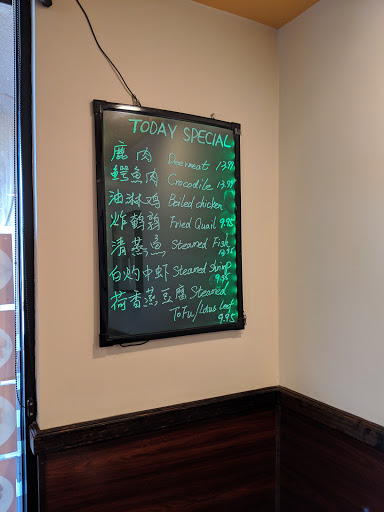 TODAY SPECIAL
鹿肉 Deermeat 13.99
鳄鱼肉 Crocodile 13.99
油淋鸡 Boiled chicken
炸鹌鹑 Fried Quail 9.95
清蒸鱼 Steamed Fish
白灼中虾 Steamed Shrimp
荷香蒸豆腐 Steamed
ToFu/Lotus Leaf
9.95